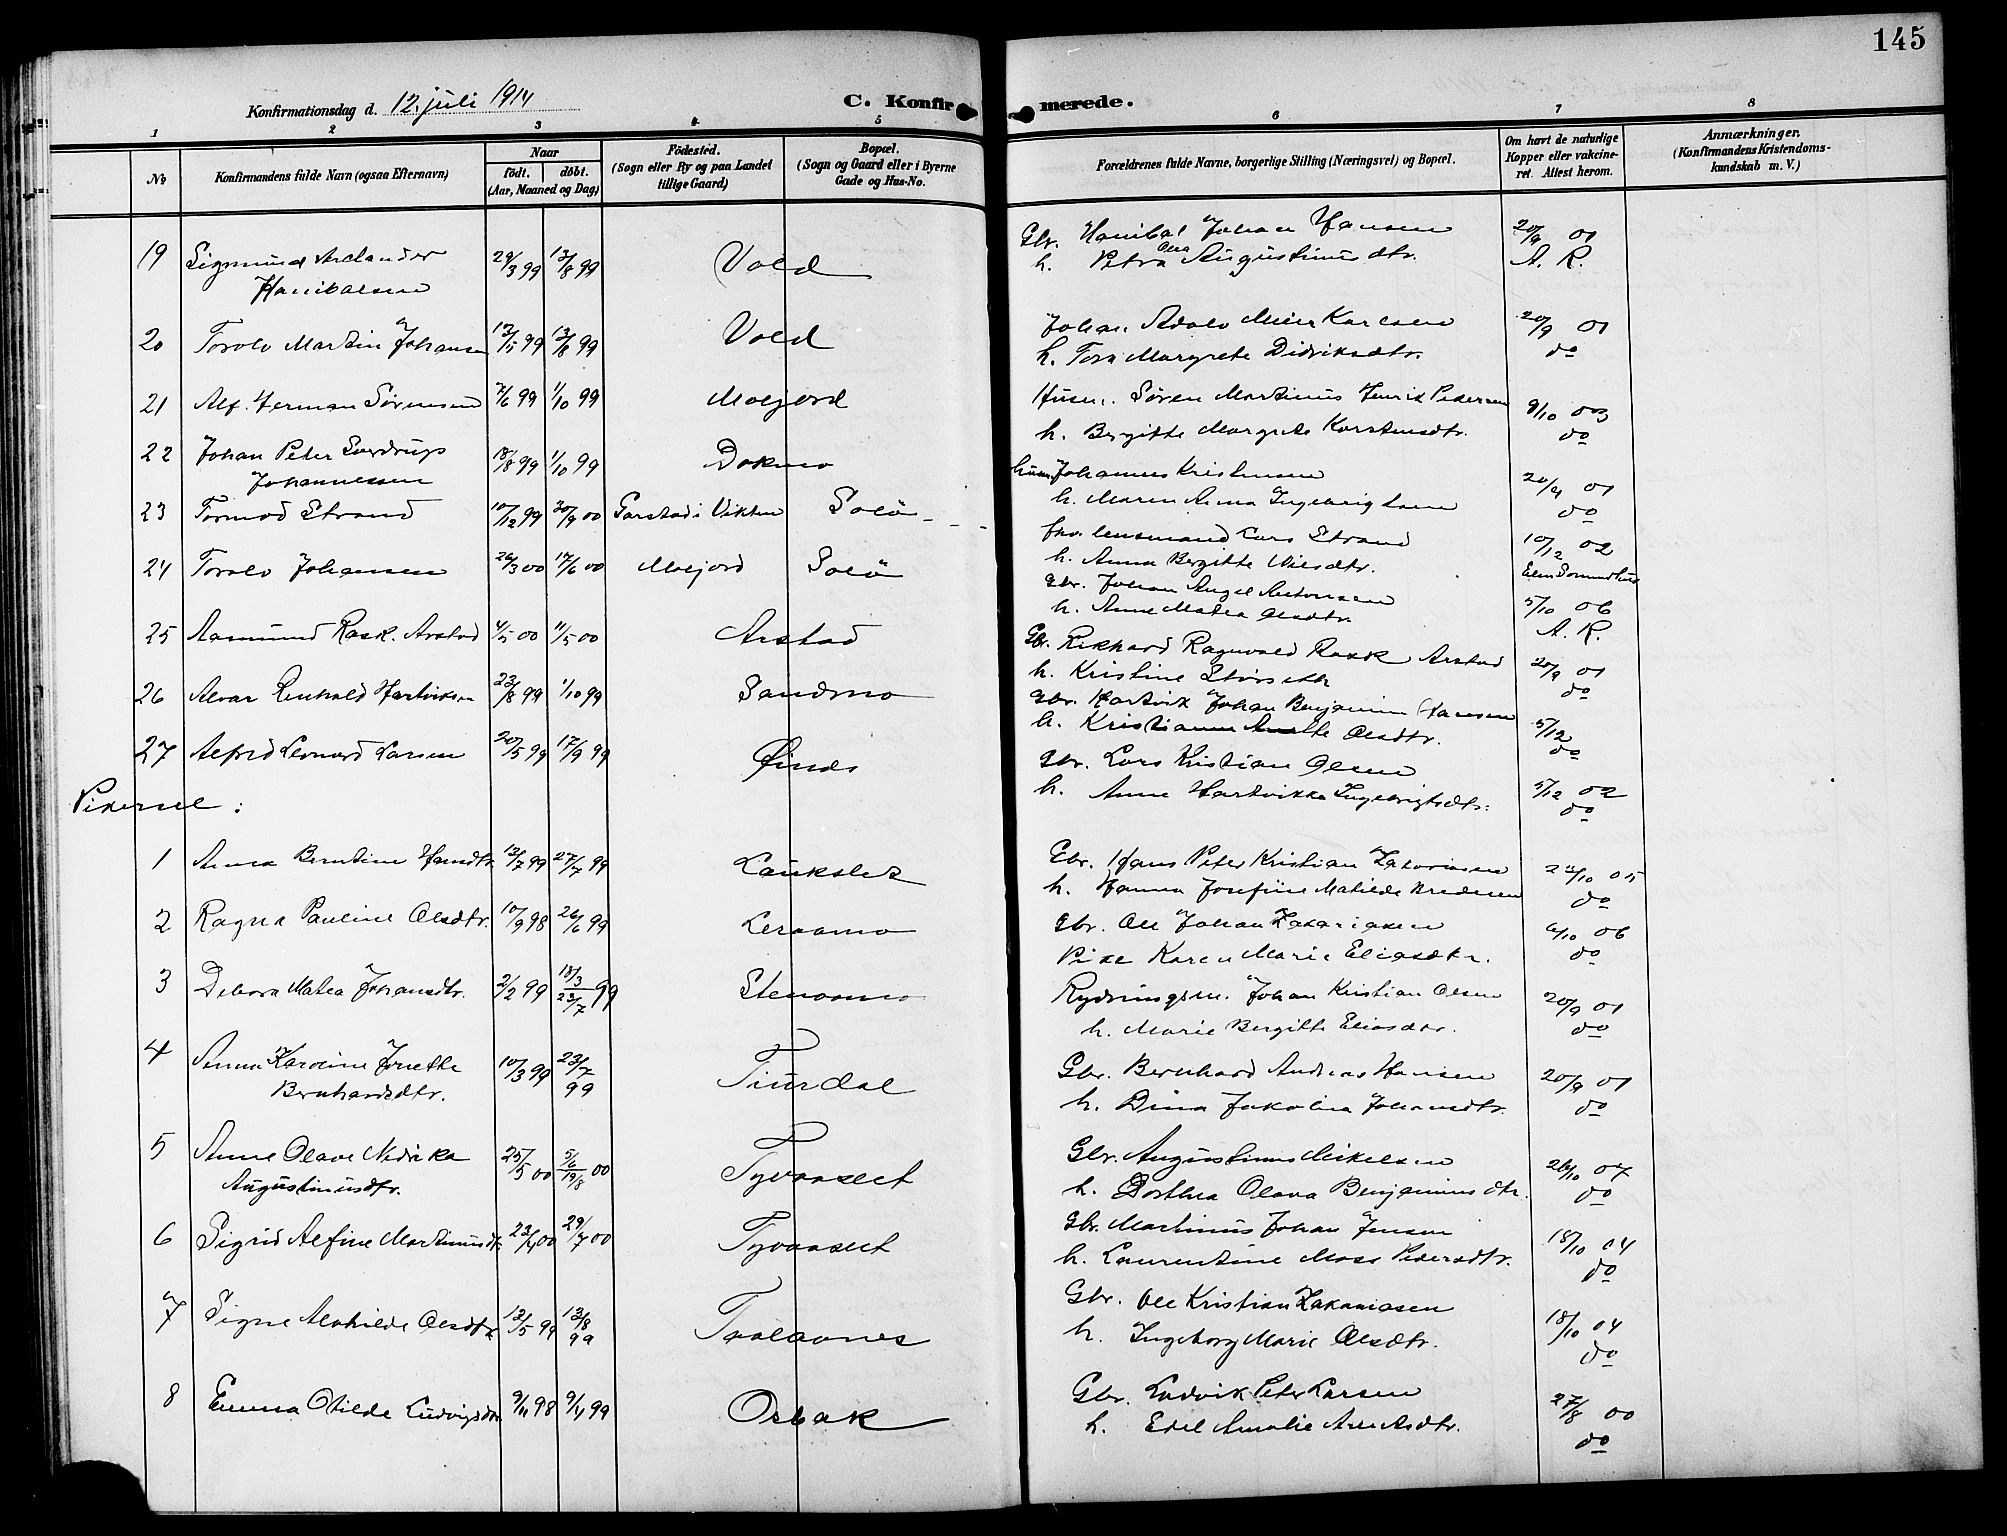 145
Konfirmationsdag d. 12. juli 1914
C. Konfirmerede.
1 2 3 4 5 6 7 8
No
Konfirmandens fulde Navn (ogsaa Efternavn)
Naar
født. døbt.
(Aar, Maaned og Dag)
Fødested.
(Sogn eller By og paa Landet
tillige Gaard)
Bopæl.
(Sogn og Gaard eller i Byerne
Gade og Hus-No.
Forældrenes fulde Navne, borgerlige Stilling (Næringsvei) og Bopæl.
Om havt de naturlige
Kopper eller vakcine-
ret. Attest herom.
Anmærkninger.
(Konfirmandens Kristendoms-
kundskab m. V.)
19 Sigmund
Hanibalsen 99 13/8 99 Vold
Gbr. Hanibal Johan Hansen 20/9 01
h. Petra Augustinusdtr. A. R.
20 Torolv Martin Johansen 99 13/8 99 Vold
Johan Adolv Meier Karlsen 20/9 01
h. Tora Margrete Didriksdtr. do
21 Alf Herman Sørensen 7/6 99 1/10 99 Moljord
Søren Martinus Henrik Pedersen 9/10 003
h. Bergitte Margrete Karstensdtr. do
22 Johan Peter Sverdrup
Johannessen 18/8 99 1/10 99 Dokmo
Johannes Kristensen 01
h. Maren Anna do
23 Tormod Strand 10/12 99 30/9 00 Garstad i Vikten Soløi
fhv. lensmand Lars Strand 10/12 02
h. Anna Bergitte Nilsdtr.
24 Torolv Johansen 26/3 00 17/6 00 Moljord Soløi
Gbr. Johan Angel Antonsen 5/10 06
h. Anne Matea Olsdtr. A. R.
25 Aasmund Rask. Arstad 4/5 00 11/5 00 Arstad
Gbr. Rikhard Ragnvald Rask Arstad 20/9 01
h. Kristine Storseth do
26 Alvar Hartviksen 23/8 99 1/10 99 Sandmo
Gbr. Hartvik Johan Benjamin Hansen 5/12
h. Kristianne Anette Olsdtr. do
27 Alfred Leonard Larsen 20/5 99 17/9 99 Øinds
Gbr. Lars Kristian Olsen 5/12 02
h. Anne Hartvikka Ingebrigtsdtr. do
Pikerne:
1 Anna Berntine Hansdtr. 12/7 99 27/7 99 Laukslet
Gbr. Hans Peter Kristian Zakariasen 05
h. Hanna Josefine Matilde do
2 Ragna Pauline Olsdtr. 10/9 98 26/6 99 Leraamo
Gbr. Ole Johan Zakariasen 6/10 06
Pike Karen Marie Eliasdtr. do
3 Debora Matea Johansdtr. 2/2 99 18/3 23/7 99 Stenaamo
Rydningsm. Johan Kristian Olsen 20/9 01
h. Marie Bergitte Eliasdtr. do
4 Anna Karoline Jonette
Bernhardsdtr. 10/3 99 23/7 99 Tiurdal
Gbr. Bernhard Andreas Hansen 20/9 01
h. Dina Jakobia Johansdtr. do
5 Anne Olave Nedrika
Augustinusdtr. 25/5 00 5/6 19/8 00 Tyvaaset
Gbr. Augustinus Mikelsen 26/10 07
h. Dorthea Olava Benjaminsdtr. do
6 Sigrid Alfine Martinusdtr. 23/4 00 29/7 00 Tyvaaset
Gbr. Martinus Johan Jensen 18/10 04
h. Laurentine Moss Pedersdtr. do
7 Signe Alvhilde Olsdtr. 12/5 99 13/8 99 Tvelavnes
Gbr. Ole Kristian Zakariasen 18/10 04
h. Ingeborg Marie Olsdtr. do
8 Emma Otilde Ludvigsdtr. 9/11 98 9/4 99 Osbak
Gbr. Ludvik Peter Larsen 27/8 00
h. Edel Amalie Arntsdtr. do